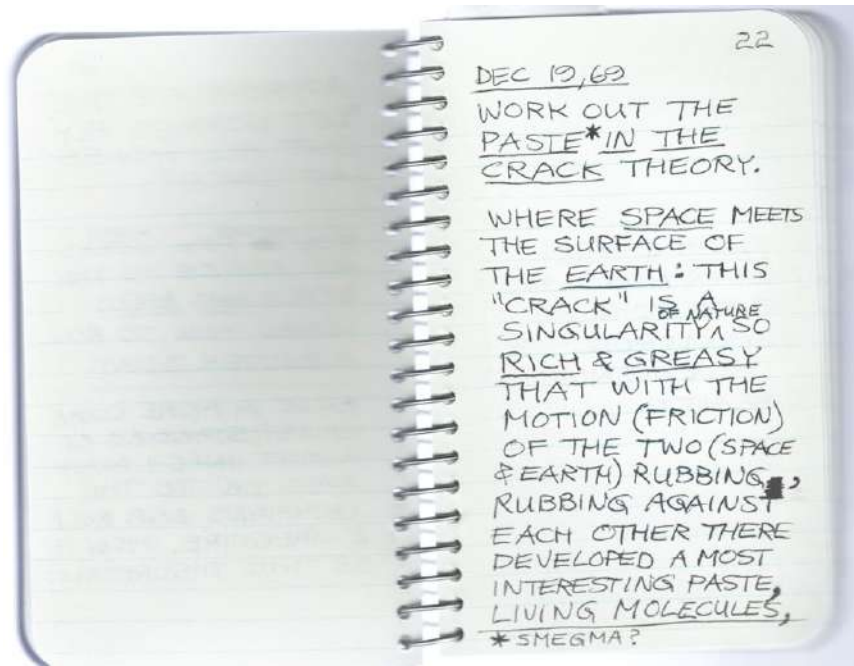 22
DEC 19, 69
WORK OUT THE
PASTE* IN THE
CRACK THEORY.
WHERE SPACE MEETS
THE SURFACE OF
THE EARTH: THIS
"CRACK" IS A
OF NATURE
SINGULARITY^ SO
RICH & GREASY
THAT WITH THE
MOTION (FRICTION)
OF THE TWO (SPACE
& EARTH) RUBBING,
RUBBING AGAINST
EACH OTHER THERE
DEVELOPED A MOST
INTERESTING PASTE,
LIVING MOLECULES,
* SMEGMA?